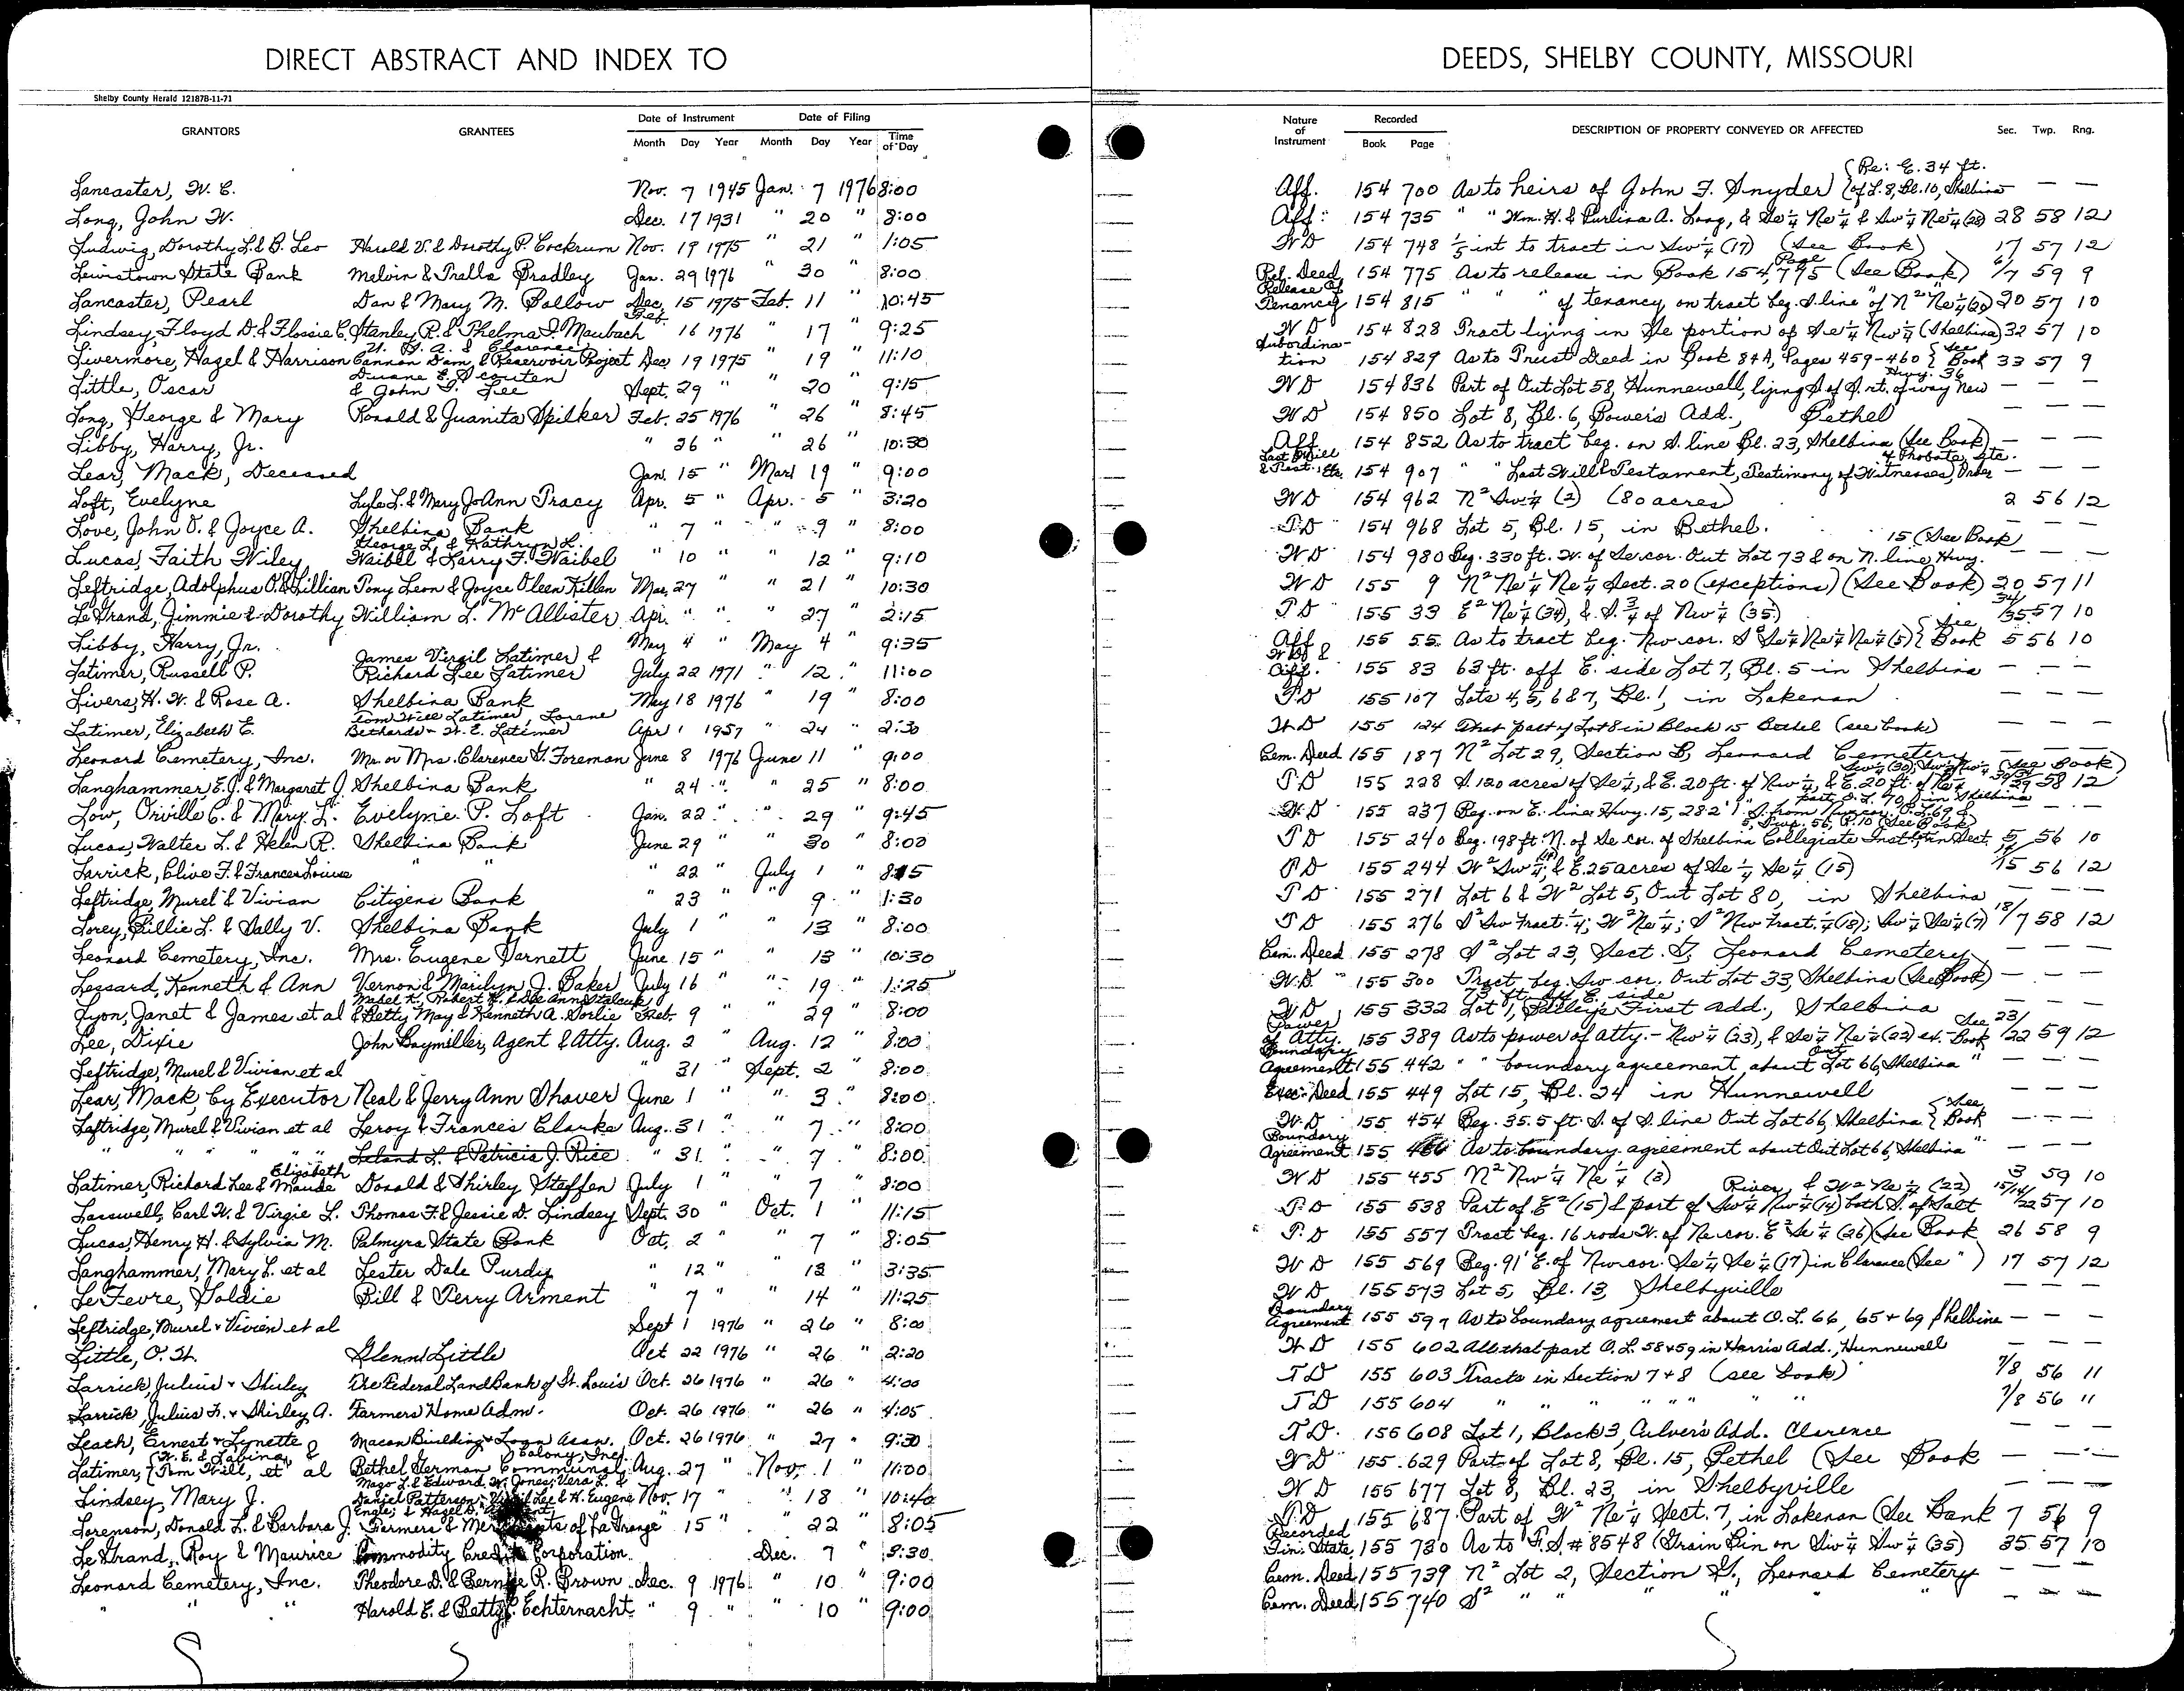 DIRECT ABSTRACT AND INDEX TO
DEEDS, SHELBY COUNTY, MISSOURI
Shelby County Herald 121878-11-71
GRANTORS GRANTEES Date of Instrument Date of Filing
Month Day Year Month Day Year Time of Day
Nature of Instrument Recorded Book Page DESCRIPTION OF PROPERTY CONVEYED OR AFFECTED Sec. Twp. Rng.
(Re: E. 34 ft.
Lancaster, W. C. Nov. 7 1945 Jan. 7 1976 8:00 Aff. 154 700 As to heirs of John F. Snyder) {of L. 8, Bl. 10, Shelbina — —
Long, John W. Dec. 17 1931 " 20 " 8:00 Aff. 154 735 " " Wm. H. & Purlina A. Long, & Se¼ Ne¼ & Sw¼ Ne¼ (28) 28 58 12
Ludwig, Dorothy L. & B. Leo Harold V. & Dorothy P. Cockrum Nov. 19 1975 " 21 " 1:05 WD 154 748 1/5 int to tract in Sw¼ (17) (See Book) 17 57 12
Lewistown State Bank Melvin & Tralla Bradley Jan. 29 1976 " 30 " 8:00 Rel. Deed 154 775 As to release in Book 154, Page 775 (See Book) 6/7 59 9
Lancaster, Pearl Dan & Mary M. Ballow Dec. 15 1975 Feb. 11 " 10:45 Release of Tenancy 154 815 " " " of tenancy on tract beg. S. line of N² Ne¼ (20) 20 57 10
Lindsey, Floyd D. & Flossie C. Stanley R. & Thelma I. Maubach Feb. 16 1976 " 17 " 9:25 WD 154 828 Tract lying in Se portion of Se¼ Nw¼ (Shelbina) 32 57 10
Livermore, Hazel & Harrison U. S. A. & Clarence Cannon Dam & Reservoir Project Dec. 19 1975 " 19 " 11:10 Subordination 154 829 As to Trust Deed in Book 84A, Pages 459-460 {See Book 33 57 9
Little, Oscar Duane E. Scouten & John T. Lee Sept. 29 " " 20 " 9:15 WD 154 836 Part of Out Lot 58, Hunnewell, lying S. of S. rt. of way New Hwy. 36 — — —
Long, George & Mary Ronald & Juanita Spilker Feb. 25 1976 " 26 " 8:45 WD 154 850 Lot 8, Bl. 6, Powers Add., Bethel — — —
Libby, Harry, Jr. " 26 " " 26 " 10:30 Aff. 154 852 As to tract beg. on S. line Bl. 23, Shelbina (See Book) — — —
Lear, Mack, Deceased Jan. 15 " Mar. 19 " 9:00 Last Will & Test. etc. 154 907 " " Last Will & Testament, Testimony of Witnesses, Order of Probate, etc. — — —
Loft, Evelyne Lyle L. & Mary JoAnn Tracy Apr. 5 " Apr. 5 " 3:20 WD 154 962 N² Sw¼ (2) (80 acres) 2 56 12
Love, John O. & Joyce A. Shelbina Bank " 7 " " 9 " 8:00 TD 154 968 Lot 5, Bl. 15, in Bethel. — — —
Lucas, Faith Wiley George L. & Kathryn L. Waibel & Larry F. Waibel " 10 " " 12 " 9:10 WD 154 980 Beg. 330 ft. W. of Se cor. Out Lot 73 & on N. line Hwy. 15 (See Book) — — —
Leftridge, Adolphus O. & Lillian Tony Leon & Joyce Oleen Killen Mar. 27 " " 21 " 10:30 WD 155 9 N² Ne¼ Ne¼ Sect. 20 (exceptions) (See Book) 20 57 11
LeGrand, Jimmie & Dorothy William L. McAllister Apr. " " " 27 " 2:15 TD 155 33 E² Ne¼ (34), & S. ¾ of Nw¼ (35) 34/35 57 10
Libby, Harry, Jr. May 4 " May 4 " 9:35 Aff. 155 55 As to tract beg. Nw cor. S² Se¼ Ne¼ Ne¼ (5) {See Book 5 56 10
Latimer, Russell P. James Virgil Latimer & Richard Lee Latimer July 22 1971 " 12 " 11:00 155 83 63 ft. off E. side Lot 7, Bl. 5 in Shelbina — — —
Livers, H. W. & Rose A. Shelbina Bank May 18 1976 " 19 " 8:00 TD 155 107 Lots 4, 5, 6 & 7, Bl. 1, in Lakenan — — —
Latimer, Elizabeth E. Tom Will Latimer, Lorene Bethards - W. E. Latimer Apr 1 1957 " 24 " 2:30 WD 155 124 That part of Lot 8 in Block 15 Bethel (see book) — — —
Leonard Cemetery, Inc. Mr. or Mrs. Clarence G. Foreman June 8 1976 June 11 " 9:00 Cem. Deed 155 187 N² Lot 29, Section B, Leonard Cemetery — — —
Langhammer, E. J. & Margaret J. Shelbina Bank " 24 " " 25 " 8:00 TD 155 228 S. 120 acres of Se¼, & E. 20 ft. of Nw¼, & E. 20 ft. of (See Book) 58 12
Low, Orville C. & Mary L. Evelyne P. Loft Jan. 22 " " 29 " 9:45 WD 155 237 Beg. on E. line Hwy. 15, 282' — — —
Lucas, Walter L. & Helen R. Shelbina Bank June 29 " " 30 " 8:00 TD 155 240 Beg. 198 ft. N. of Se cor. of Shelbina Collegiate Inst. Lot in Sect. 5, Twp. 56, R. 10 (See Book) 5 56 10
Larrick, Clive F. & Frances Louise " " " 22 " July 1 " 8:15 TD 155 244 W² Sw¼, & E. 25 acres of Se¼ Se¼ (15) 56 12
Leftridge, Murel & Vivian Citizens Bank " 23 " " 9 " 1:30 TD 155 271 Lot 6 & W² Lot 5, Out Lot 80, in Shelbina — — —
Lorey, Billie L. & Sally V. Shelbina Bank July 1 " " 13 " 8:00 TD 155 276 S² Sw Fract. ¼; W² Ne¼; S² Nw Fract. ¼ (18); Sw¼ Se¼ (7) 18/7 58 12
Leonard Cemetery, Inc. Mrs. Eugene Darnett June 15 " " 13 " 10:30 Cem. Deed 155 278 S² Lot 23, Sect. G, Leonard Cemetery — — —
Legsard, Kenneth & Ann Vernon & Marilyn J. Baker July 16 " " 19 " 1:25 WD 155 300 Tract beg. Sw cor. Out Lot 33, Shelbina (See Book) — — —
Lyon, Janet & James et al & Betty May & Kenneth A. Sorlie Feb. 9 " " 29 " 8:00 WD 155 332 73 ft. off E. side Lot 1, First Add., Shelbina — — —
Lee, Dixie John Baymiller, Agent & Atty. Aug. 2 " Aug. 12 " 8:00 Power of Atty. 155 389 As to power of atty. - Nw¼ (23), & Se¼ Ne¼ (22) ex. See Book 23/22 59 12
Leftridge, Murel & Vivian et al " 31 " Sept. 2 " 8:00 Boundary Agreement 155 442 " " boundary agreement about Out Lot 66, Shelbina — — —
Lear, Mack, by Executor Neal & Jerry Ann Shaver June 1 " " 3 " 8:00 Exec. Deed 155 449 Lot 15, Bl. 24 in Hunnewell — — —
Leftridge, Murel & Vivian et al Leroy & Frances Clarke Aug. 31 " " 7 " 8:00 WD 155 454 Beg. 35.5 ft. S. of S. line Out Lot 66, Shelbina {See Book — — —
" " " " " Leland L. & Patricia J. Rice " 31 " " 7 " 8:00 Boundary Agreement 155 As to boundary agreement about Out Lot 66, Shelbina — — —
Latimer, Richard Lee & Elizabeth Maude Donald & Shirley Steffen July 1 " " 7 " 8:00 WD 155 455 N² Nw¼ Ne¼ (3) 3 59 10
Lasswell, Carl W. & Virgie L. Thomas F. & Jessie D. Lindsey Sept. 30 " Oct. 1 " 11:15 TD 155 538 Part of E² (15) & part of Sw¼ Nw¼ (14) both S. of Salt River, & W² Ne¼ (22) 15/14/22 57 10
Lucas, Henry H. & Sylvia M. Palmyra State Bank Oct. 2 " " 7 " 8:05 TD 155 557 Tract beg. 16 rods W. of Ne cor. E² Se¼ (26) (See Book 26 58 9
Langhammer, Mary L. et al Lester Dale Purdy " 12 " " 13 " 3:35 WD 155 569 Beg. 91' E. of Nw cor. Se¼ Se¼ (17) in Clarence (See " ) 17 57 12
LeFevre, Goldie Bill & Perry Arment " 7 " " 14 " 11:25 WD 155 573 Lot 5, Bl. 13, Shelbyville — — —
Leftridge, Murel & Vivien et al Sept 1 1976 " 26 " 8:00 Boundary Agreement 155 597 As to boundary agreement about O. L. 66, 65 + 69 Shelbina — — —
Little, O. H. Glenn Little Oct 22 1976 " 26 " 2:20 WD 155 602 All that part O. L. 58 & 59 in Harris Add., Hunnewell — — —
Larrick, Julius + Shirley The Federal Land Bank of St. Louis Oct. 26 1976 " 26 " 4:00 TD 155 603 Tracts in Section 7 + 8 (see book) 7/8 56 11
Larrick, Julius F. + Shirley A. Farmers Home Adm. Oct. 26 1976 " 26 " 4:05 TD 155 604 " " " " " " " 7/8 56 11
Leach, Ernest + Lynette Macon Building + Loan Assn. Oct. 26 1976 " 27 " 9:30 TD. 155 608 Lot 1, Block 3, Culver's Add. Clarence — — —
Latimer, {W. E. & Labina & Tom Will, et al Bethel German Communal Colony, Inc. Aug. 27 " Nov. 1 " 11:00 WD 155 629 Part of Lot 8, Bl. 15, Bethel (See Book — — —
Lindsey, Mary J. Mago L. & Edward W. Jones; Vera L. & Daniel Patterson; Lee & H. Eugene Engle; & Hazel D. Nov. 17 " " 18 " 10:40 WD 155 677 Lot 8, Bl. 23, in Shelbyville — — —
Lorenson, Donald L. & Barbara J. Farmers & Merchants of LaGrange " 15 " " 22 " 8:05 TD 155 687 Part of W² Ne¼ Sect. 7, in Lakenan (See Bank 7 56 9
LeGrand, Roy & Maurice Commodity Credit Corporation Dec. 7 " 8:30 Recorded Fin. State. 155 730 As to F.S. # 8548 (Grain Bin on Sw¼ Sw¼ (35) 35 57 10
Leonard Cemetery, Inc. Theodore D. & Bernice R. Brown Dec. 9 1976 " 10 " 9:00 Cem. Deed 155 739 N² Lot 2, Section G., Leonard Cemetery — — —
" " " Harold E. & Betty Echternacht " 9 " " 10 " 9:00 Cem. Deed 155 740 S² " " " " " — — —